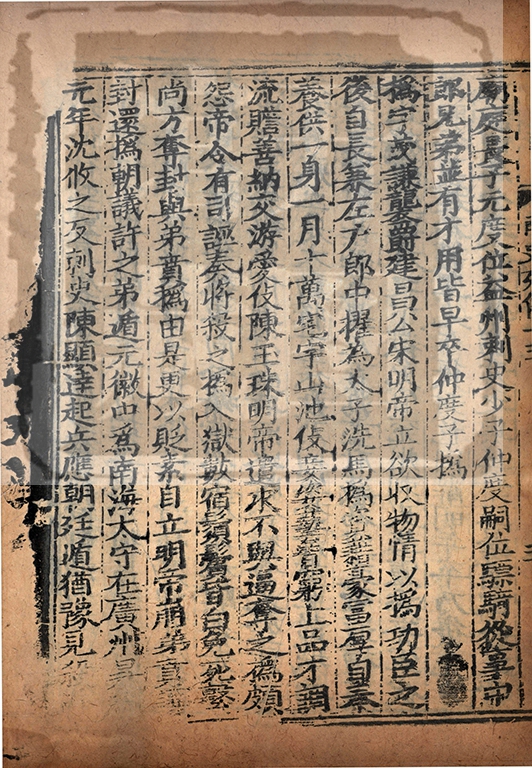 廟庭長子元度位益州刺史少子仲度嗣位驃騎從事中
郎兄弟並有才用皆早卒仲度子撝
撝字茂謙襲爵建昌公宋明帝立欲収物情以撝功臣之
後自長兼左戶郎中擢為太子洗馬撝資藉豪富厚自奉
養供一身一月十萬宅宇山池伎妾姿藝皆窮上品才調
流贍善納交游愛伎陳玉珠明帝遣求不與逼奪之撝頗
怨帝令有司誣奏將殺之撝入獄數宿鬚鬢皆白免死繫
尚方奪封與弟賁撝由是更以貶素自立明帝崩弟賁
封還撝朝議許之弟遁元徽中為南海太守在廣州昇
元年沈攸之反刺史陳顯達起兵應朝廷遁猶豫見殺